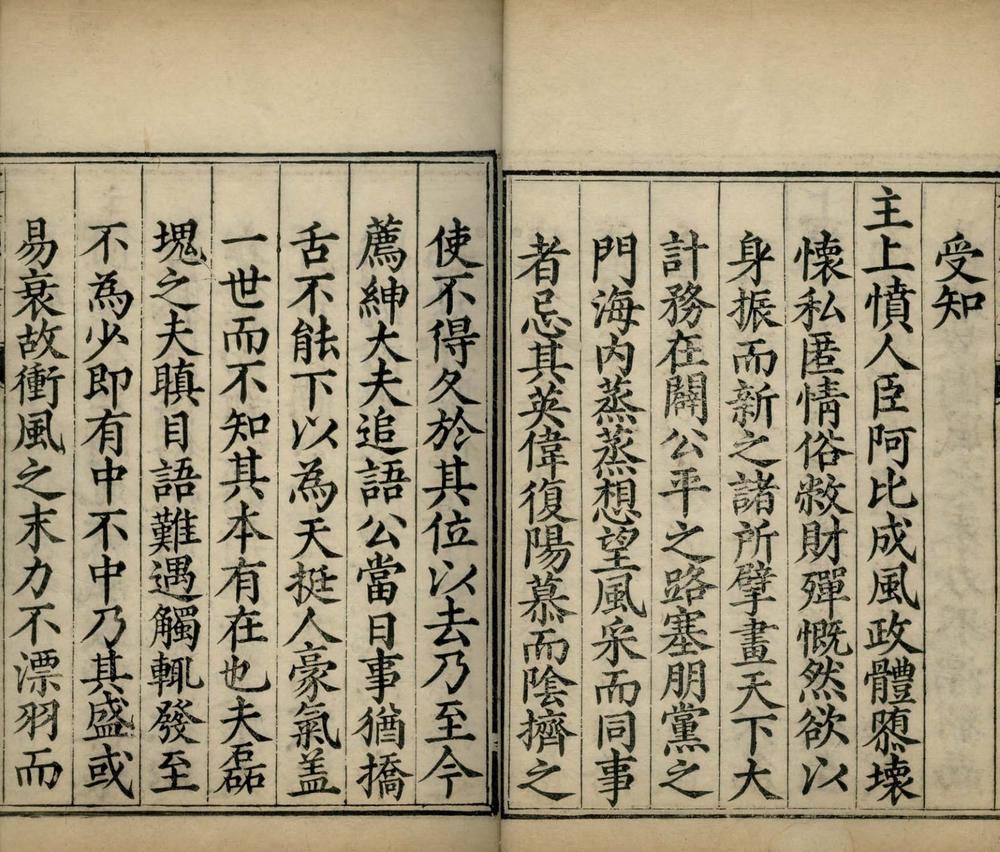 受知
主上憤人臣阿比成風政體隳壞
懷私匿情俗敝財殫慨然欲以
身振而新之諸所擘畫天下大
計務在闢公平之路塞朋黨之
門海内蒸蒸想望風采而同事
者忌其英偉復陽慕而陰擠之
使不得久於其位以去乃至今
薦紳大夫追語公當日事猶撟
舌不能下以為天挺人豪氣蓋
一世而不知其本有在也夫磊
塊之夫瞋目語難遇觸輒發至
不為少即有中不中乃其盛或
易衰故衝風之末力不漂羽而